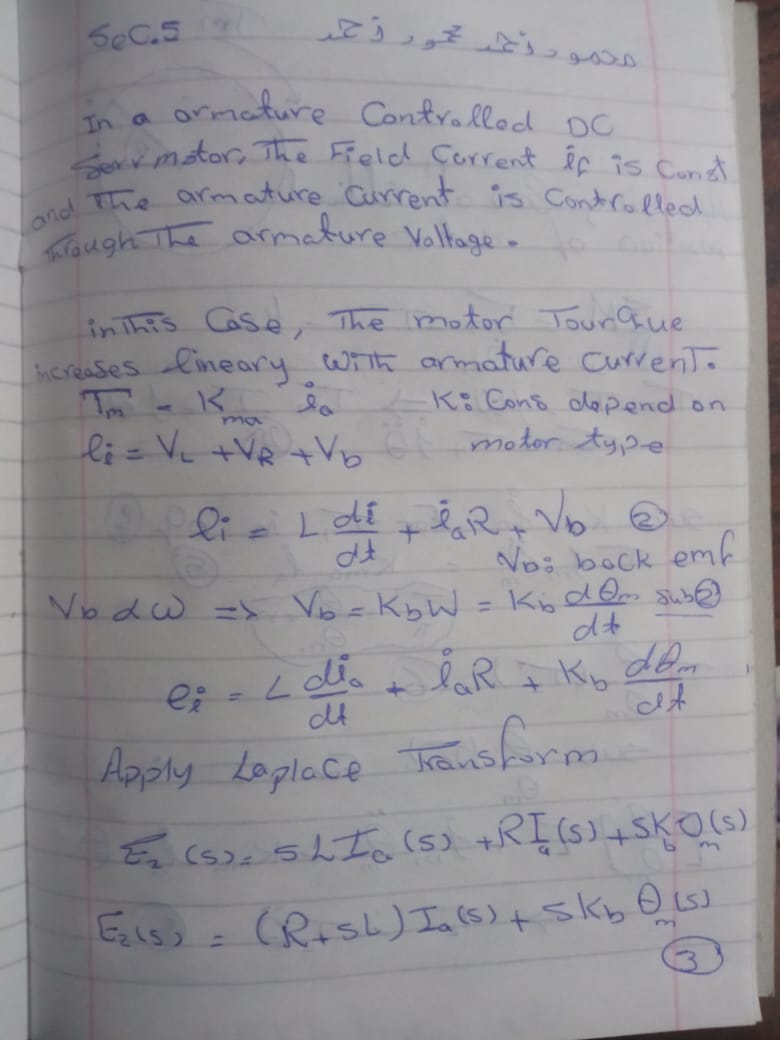 Sec.5
In a armature Controlled DC
Servmotor, The Field Current if is Const
and The armature Current is Controlled
Through The armature Voltage.
in This Case, The motor Tourque
increases lineary with armature current.
Tm = Kma ia ⇐ K: Cons depend on
motor type
ei = VL + VR + Vb
ei = L di/dt + iaR + Vb ②
Vb: back emf
Vb α ω => Vb = Kb W = Kb dθm/dt sub②
ei = L dia/dt + iaR + Kb dθm/dt
Apply Laplace Transform
E2 (s) = sLIa (s) + RIa(s) + SKbθm(s)
E2(s) = (R+SL) Ia(s) + SKb θm(s)
③